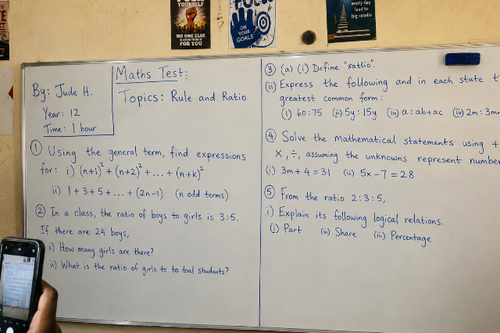 NO ONE ELSE
FOR YOU
ON YOUR
GOALS
every day
lead to
big results
Maths Test:
By: Jude H.
Year: 12
Time: 1 hour
Topics: Rule and Ratio
① Using the general term, find expressions
for: i) (n+1)² + (n+2)² + ... + (n+k)²
ii) 1+3+5+...+(2n-1) (n odd terms)
② In a class, the ratio of boys to girls is 3:5.
If there are 24 boys,
i) How many girls are there?
ii) What is the ratio of girls to to toal students?
③ (a) (i) Define "rattio".
(ii) Express the following and in each state
greatest common form:
(i) 60:75 (ii) 5y:15y (iii) a:ab+ac (iv) 2m:3m
④ Solve the mathematical statements using +
×, ÷, assuming the unknowns represent number
i) 3m+4=31 (ii) 5x-7=28
⑤ From the ratio 2:3:5,
i) Explain its following logical relations.
(i) Part (ii) Share (iii) Percentage